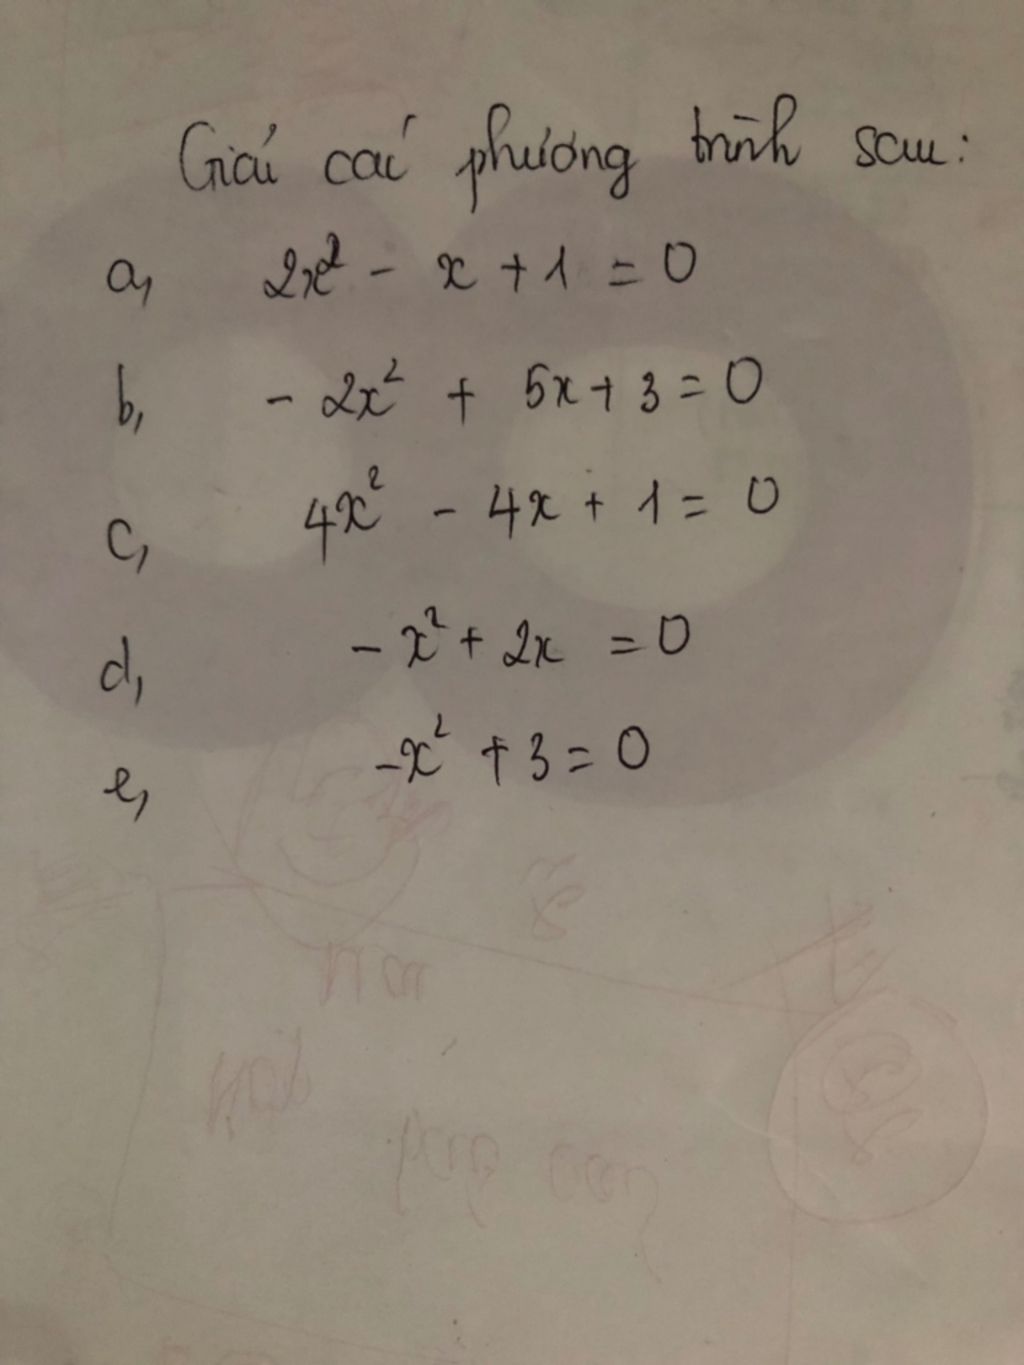 Giải các phương trình sau:
a, 2x² - x + 1 = 0
b, - 2x² + 5x + 3 = 0
c, 4x² - 4x + 1 = 0
d, - x² + 2x = 0
e, -x² + 3 = 0